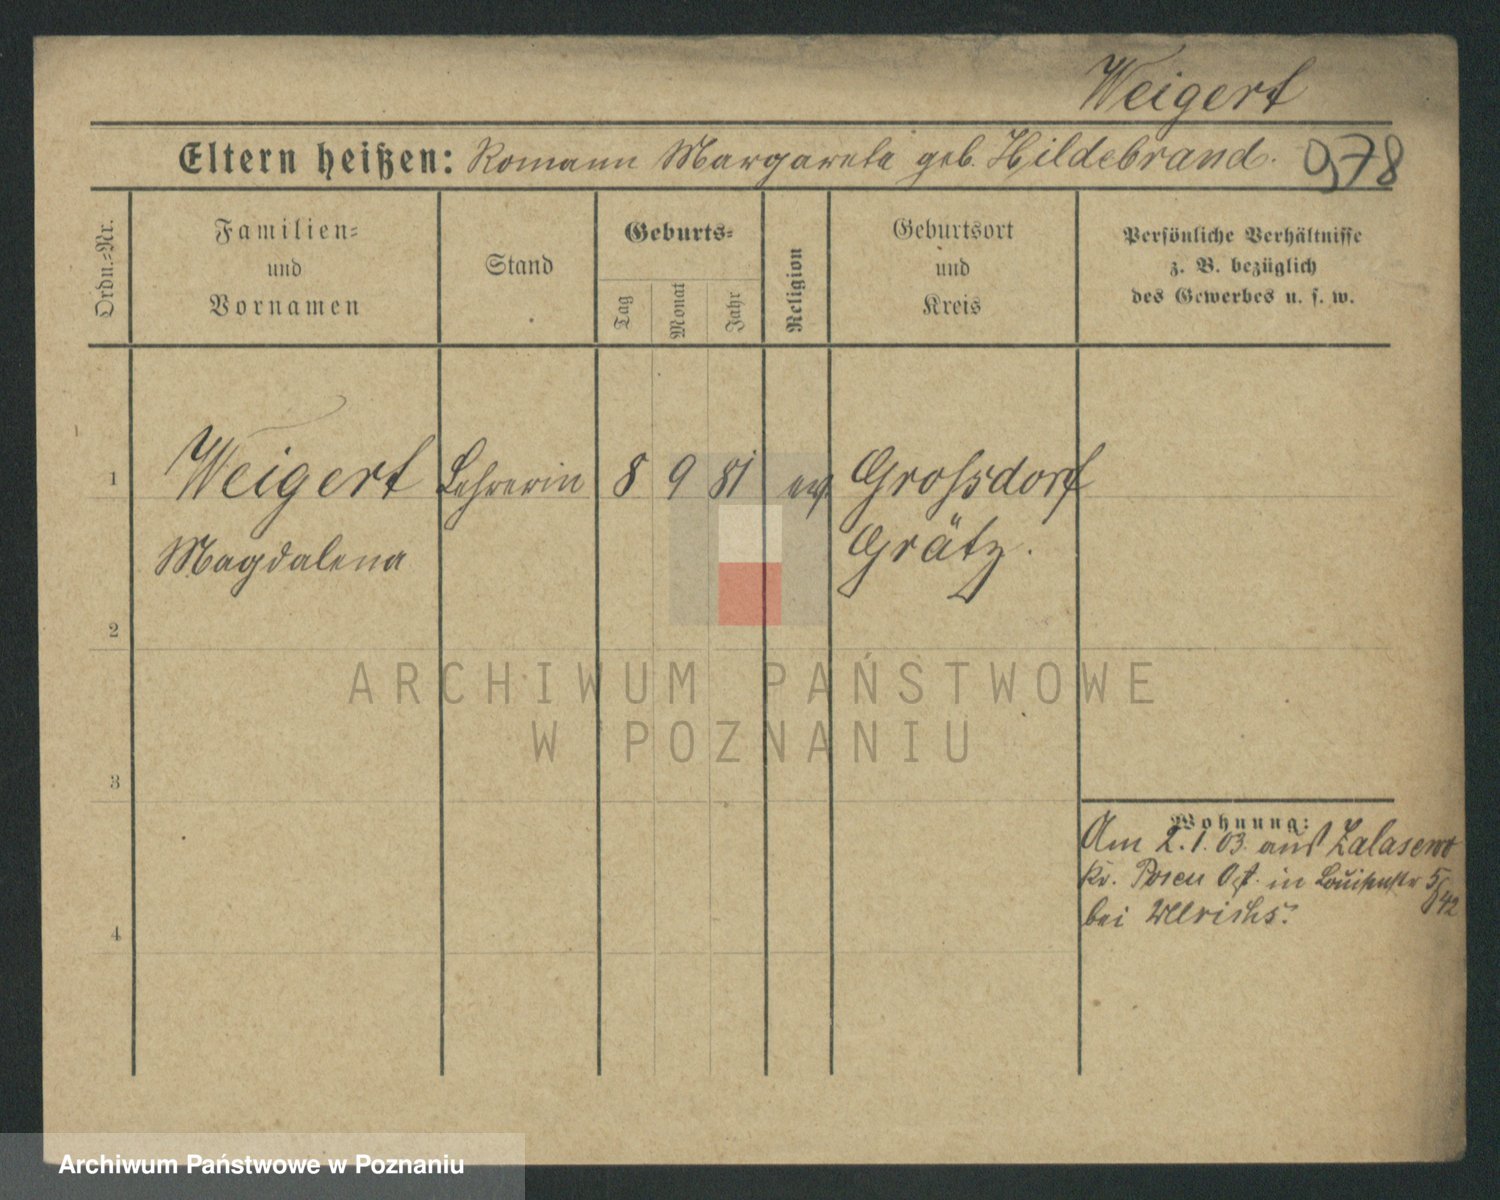 Weigert
Eltern heißen: Romann Margareta geb. Hildebrand. 978
Ordn.-Nr.
Familien-
und
Vornamen
Stand
Geburts-
Tag
Monat
Jahr
Religion
Geburtsort
und
Kreis
Persönliche Verhältnisse
z. B. bezüglich
des Gewerbes u. s. w.
1 Weigert Lehrerin 8 9 81 ev. Grossdorf
Magdalena Grätz.
2
3
4
Wohnung:
Am 2.1.03. aus Zalasewo
Kr. Posen Ost. in Louisenstr 5/42
bei Ullrichs.
ARCHIWUM PAŃSTWOWE
W POZNANIU
Archiwum Państwowe w Poznaniu